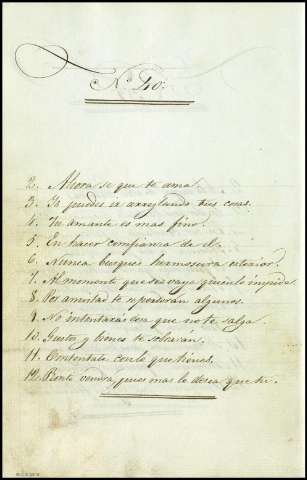 N.º 40.
2. Ahora se que te ama.
3. Ya puedes ir arreglando tus cosas.
4. Tu amante es mas fino.
5. En hacer confianza de el.
6. Nunca busques hermosura exterior.
7. Al momento que se vaya quien lo impide.
8. Por amistad te
algunos.
9. No intentarás con que no te salga.
10. Gustos y bienes te sobrarán.
11. Contentate con lo que tienes.
12. Pronto vendrá, pues mas lo desea que tu.